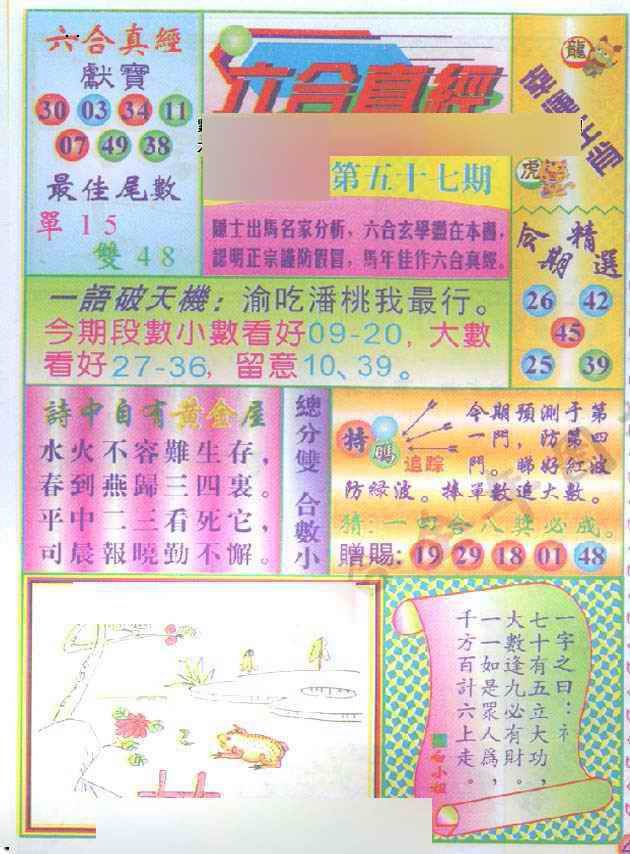 六合真經
獻寶
30 03 34 11
07 49 38
最佳尾數
單15
雙48
六合真經
第五十七期
隱士出馬名家分析，六合玄學盡在本圖，
認明正宗謹防假冒，馬年佳作六合真經。
龍
虎
今期精選
26 42
45
25 39
一語破天機：渝吃潘桃我最行。
今期段數小數看好09-20，大數
看好27-36，留意10、39。
詩中自有黃金屋
水火不容難生存，
春到燕歸三四裏。
平中二三看死它，
司晨報曉勤不懈。
總分雙 合數小
特碼
追踪
今期預測于第
一門，防第四
門。睇好紅波
防綠波。捧單數追大數。
猜：一四合八獎必成。
贈賜：19 29 18 01 48
一字之曰：礻
七十有五立大功，
大數逢九必有財。
一一如是眾人為，
千方百計六上走。
白小姐